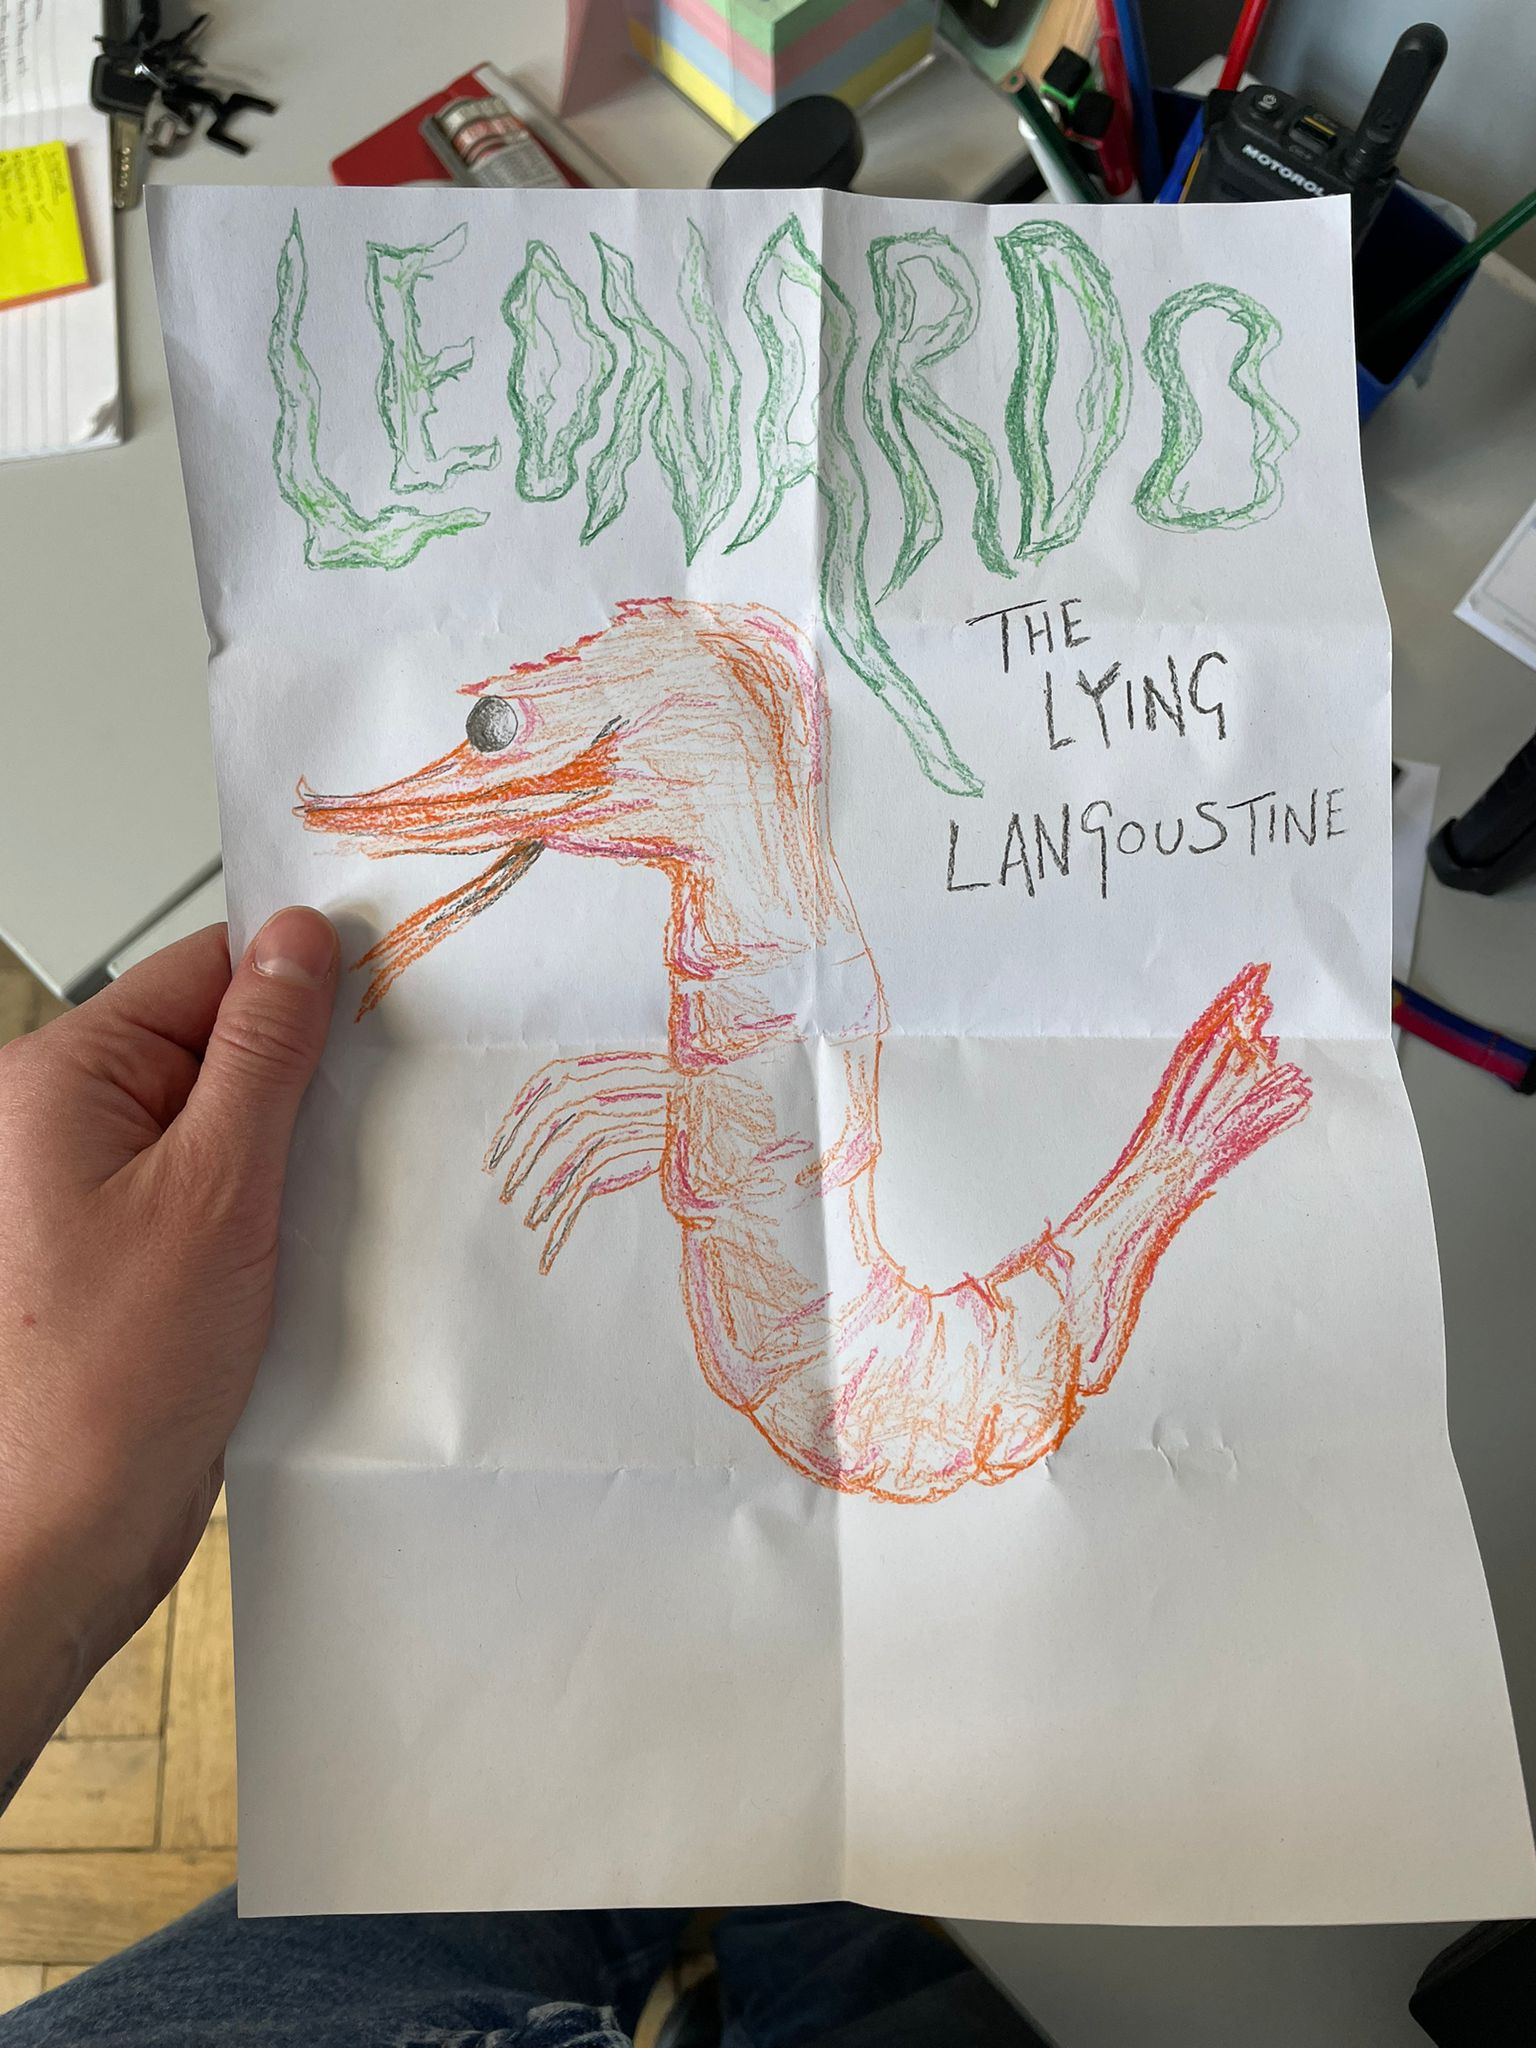 LEONARDO
THE
LYING
LANGOUSTINE
MOTOROLA